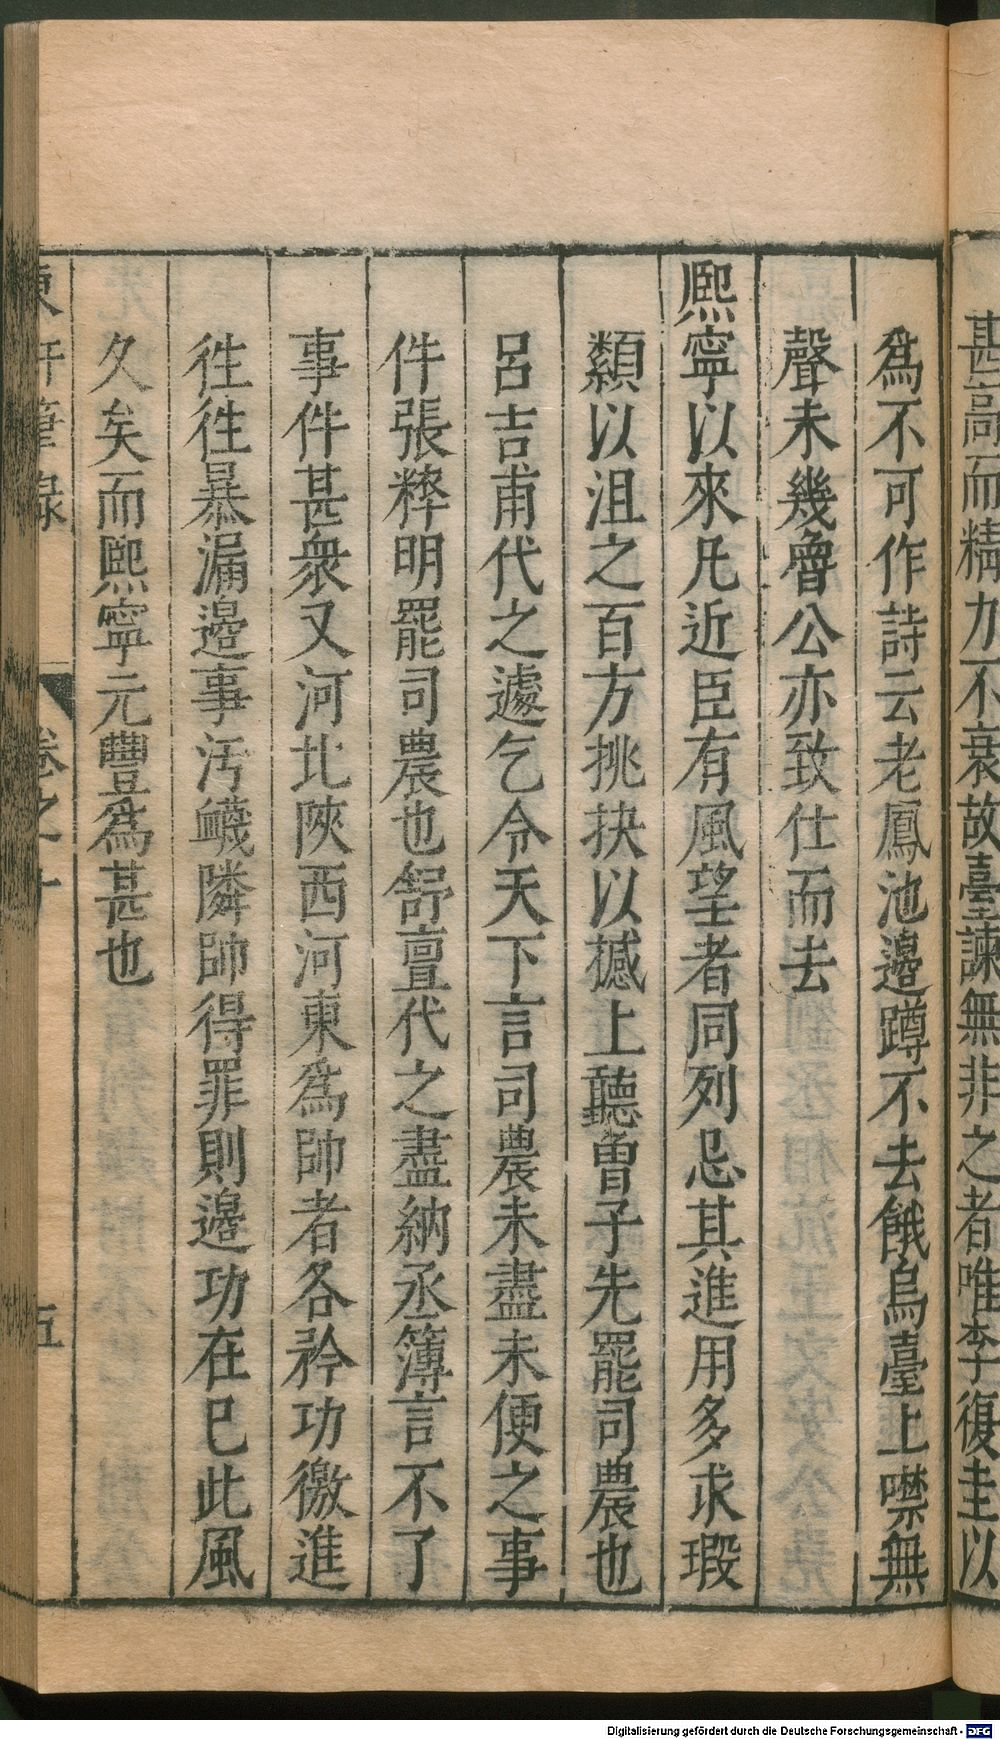 甚高而精力不衰故臺諫無非之者唯李復圭以
爲不可作詩云老鳳池邊蹲不去餓烏臺上噤無
聲未幾魯公亦致仕而去
熈寧以來凡近臣有風望者同列忌其進用多求瑕
纇以沮之百方挑抉以撼上聽曾子先罷司農也
呂吉甫代之遽乞令天下言司農未盡未便之事
件張粹明罷司農也舒亶代之盡納丞簿言不了
事件甚衆又河北陝西河東爲帥者各矜功徼進
徃徃暴漏邊事汚衊隣帥得罪則邊功在巳此風
久矣而熈寧元豐爲甚也
東軒筆錄
卷之十
五
Digitalisierung gefördert durch die Deutsche Forschungsgemeinschaft - DFG